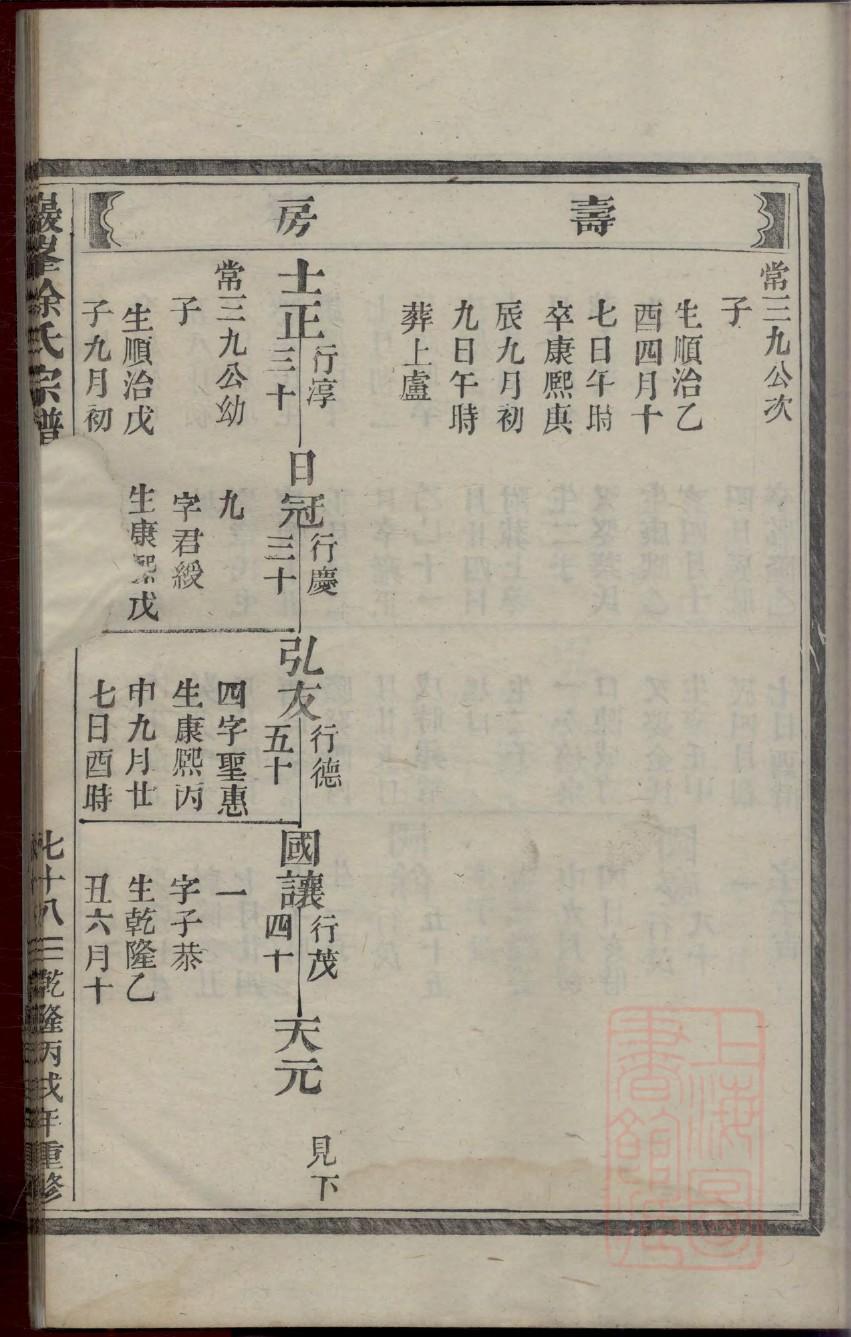 壽房
常三九公次
子
生順治乙
酉四月十
七日午時
卒康熙庚
辰九月初
九日午時
葬上盧
士正 行淳三十 日冠 行慶三十 弘友 行德五十 國讓 行茂四十 天元 見下
常三九公幼
子
生順治戊
子九月初
九
字君綬
生康熙戊
四字聖惠
生康熙丙
申九月廿
七日酉時
一
字子恭
生乾隆乙
丑六月十
巖峯徐氏宗譜
七十八
乾隆丙戌年重修
上海圖書館藏